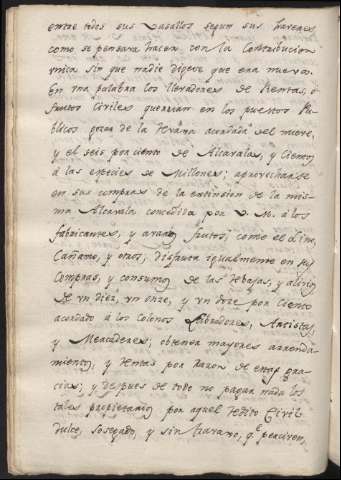 entre todos sus Vasallos segun sus haveres
como se pensava hacer con la Contribucion
unica sin que nadie digese que era nueva.
En una palabra los llevadores de Rentas, ò
frutos Civiles querrian en los puestos Pu-
blicos gozar de la acordada del nueve,
y el seis por ciento de Alcavalas, y Cientos
à las especies de Millones; aprovecharse
en sus compras de la extinsion de la mis-
ma Alcavala concedida por V. M. à los
fabricantes, y à varios frutos, como el Lino,
Cañamo, y otros; disfrutar igualmente en sus
Compras, y consumos de las rebajas, y alivios
de un diez, un onze, y un doze por Ciento
acordado à los Colonos Labradores, Artistas,
y Mercaderes; obtener mayores arrenda-
mientos, y rentas por razon de estas gra-
cias; y despues de todo no pagar nada los
tales propietarios por aquel redito Civil
dulce, sosegado, y sin travajo, q.e perciven,